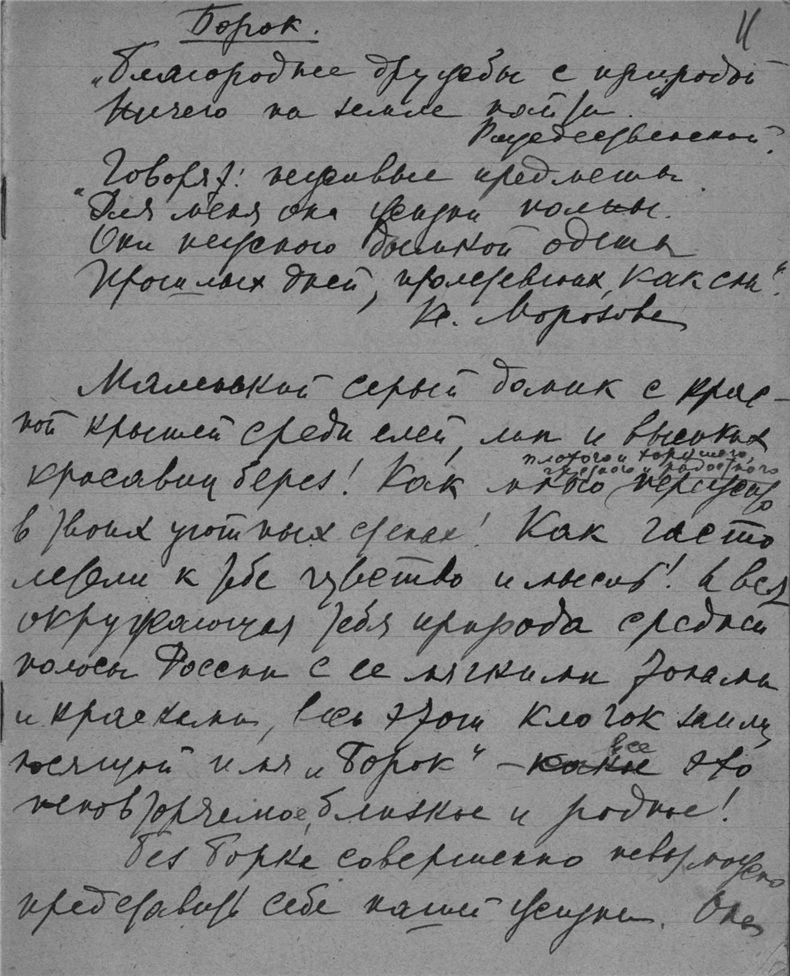 Борок.
11
„Благороднее дружбы с природой
Ничего на земле найти.“
Рождественской.
„Говорят: неживые предметы.
Для меня они жизни полны.
Они нежною дымкой одеты
Прошлых дней, пролетевших, как сны“.
К. Морозова
Маленький серый домик с крас-
ной крышей среди елей, лип и высоких
плохого и хорошего,
грустного и радостного
красавиц берез! Как много пережито
в твоих уютных стенах! Как часто
летели к тебе чувство и мысль! А вся
окружающая тебя природа средней
полосы России с ее мягкими тонами
и красками, весь этот клочок земли,
все
носящий имя „Борок“ – это
неповторяемое, близкое и родное!
Без Борка совершенно невозможно
представить себе нашей жизни. Она